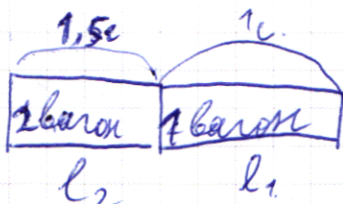 1,5с 1с.
2вагон 1вагон
l₂ l₁